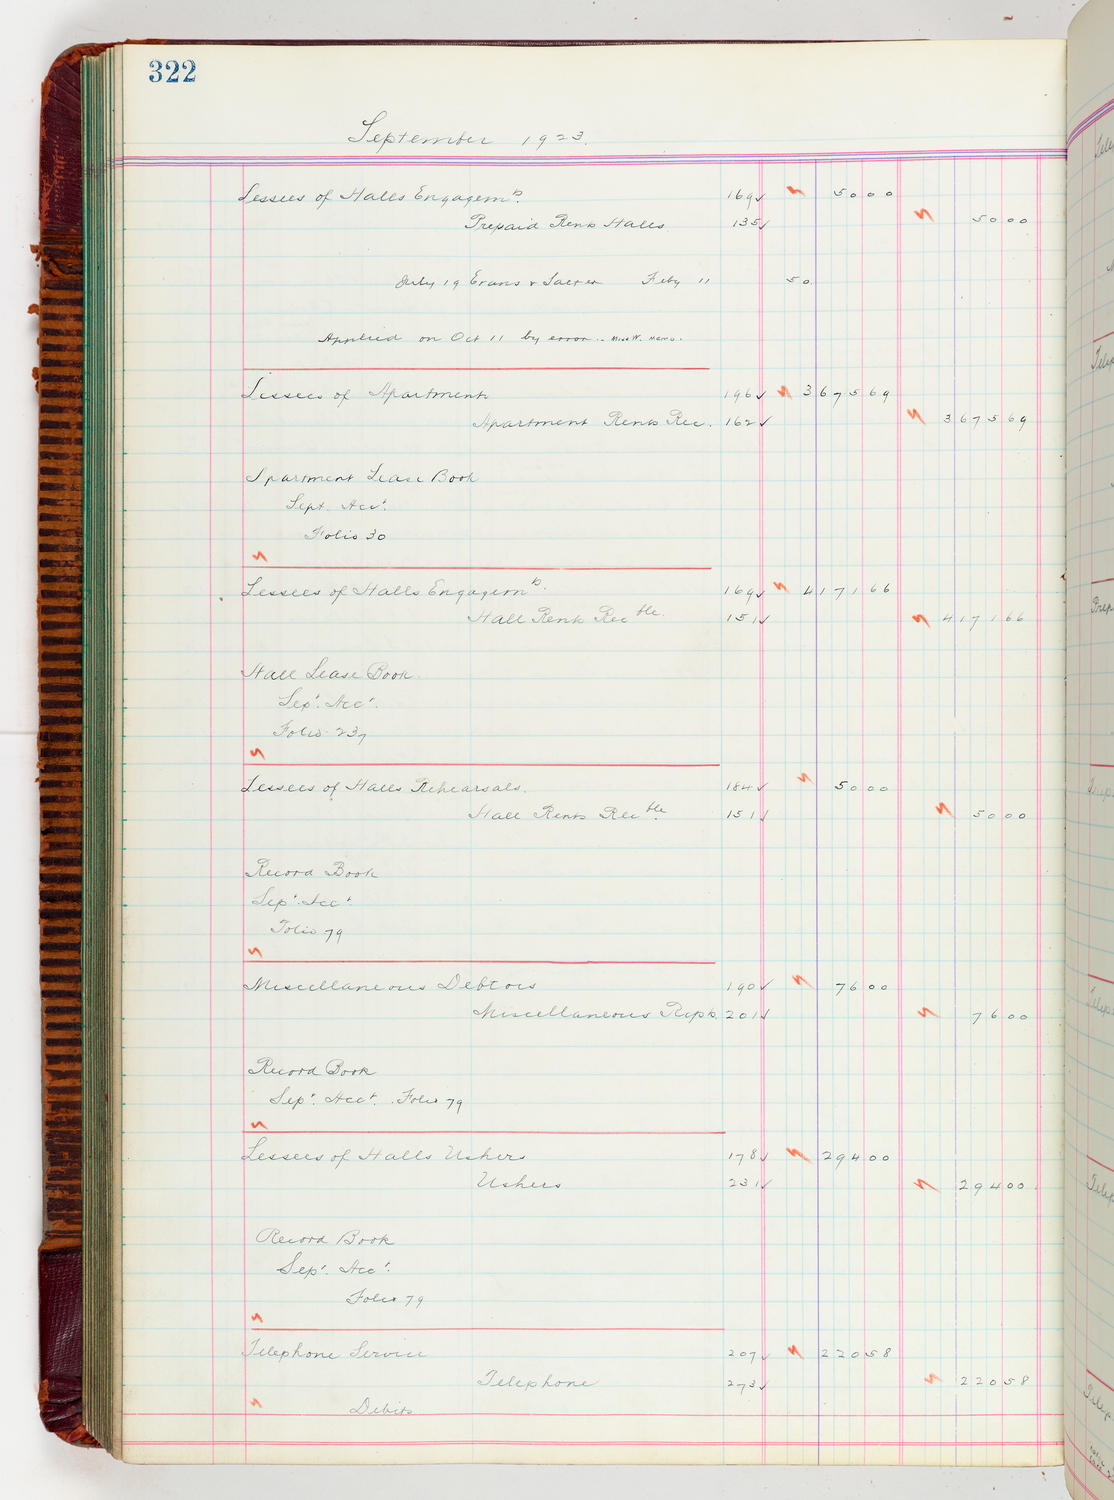 322
September 1923.
Lessees of Halls Engagemts. 169✓ 5000
Prepaid Rents Halls 135✓ 5000
July 19 Evans & Salter Feby 11 50.
Applied on Oct 11 by error.. Miss W. Memo.
Lessees of Apartments 196✓ 367569
Apartment Rents Rec. 162✓ 367569
Apartment Lease Book
Sept. Acct.
Folio 30
Lessees of Halls Engagemts. 169✓ 417166
Hall Rents Recble. 151✓ 417166
Hall Lease Book.
Sept. Acct.
Folio 237
Lessees of Halls Rehearsals. 184✓ 5000
Hall Rents Recble. 151✓ 5000
Record Book
Sept. Acct
Folio 79
Miscellaneous Debtors 190✓ 7600
Miscellaneous Repts. 201✓ 7600
Record Book
Sept. Acct. Folio 79
Lessees of Halls Ushers 178✓ 29400
Ushers 231✓ 29400
Record Book
Sept. Acct.
Folio 79
Telephone Service 207✓ 22058
Telephone 273✓ 22058
Debits